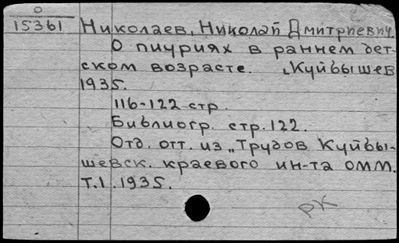 0
15361
Николаев, Николай Дмитриевич.
О пиуриях в раннем дет-
ском возрасте. Куйбышев
1935.
116-122 стр.
Библиогр. стр. 122.
Отд. отт. из „Трудов Куйбы-
шевск. краевого ин-та омм.
Т.1. 1935.
РК